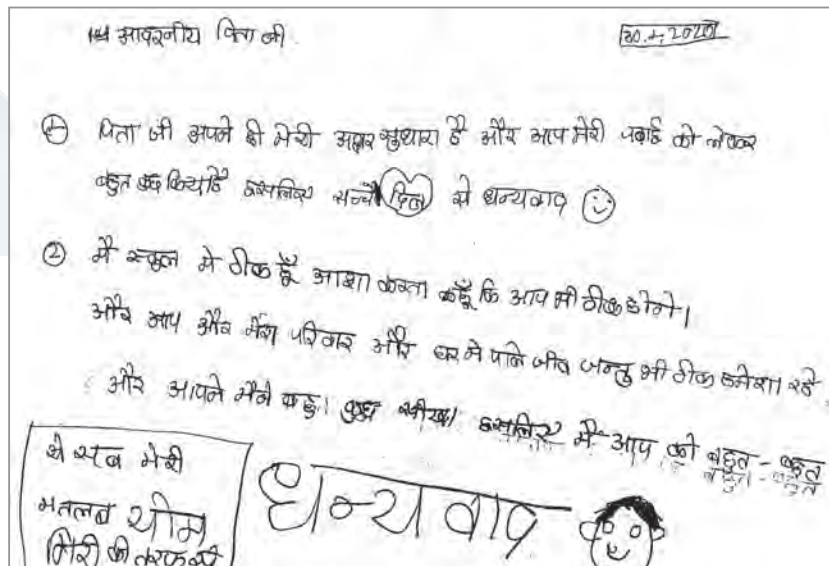 आदरनीय पिता जी
① पिता जी अपने ही मेरी अक्षर सुधारा है और आप मेरी पढाई को लेकर
बहुत कुछ किया है इसलिए सच्चे दिल से धन्यवाद
② मै स्कूल मे ठीक हूँ आशा करता हूँ कि आप भी ठीक होगे।
और आप और मेरा परिवार और घर मे पाले जीव जन्तु भी ठीक हमेशा रहे
और आपने मैने बहुत कुछ सीखा इसलिए मै आप को बहुत - बहुत
धन्यवाद
ये सब मेरी
मतलब
गिरी की तरफ से